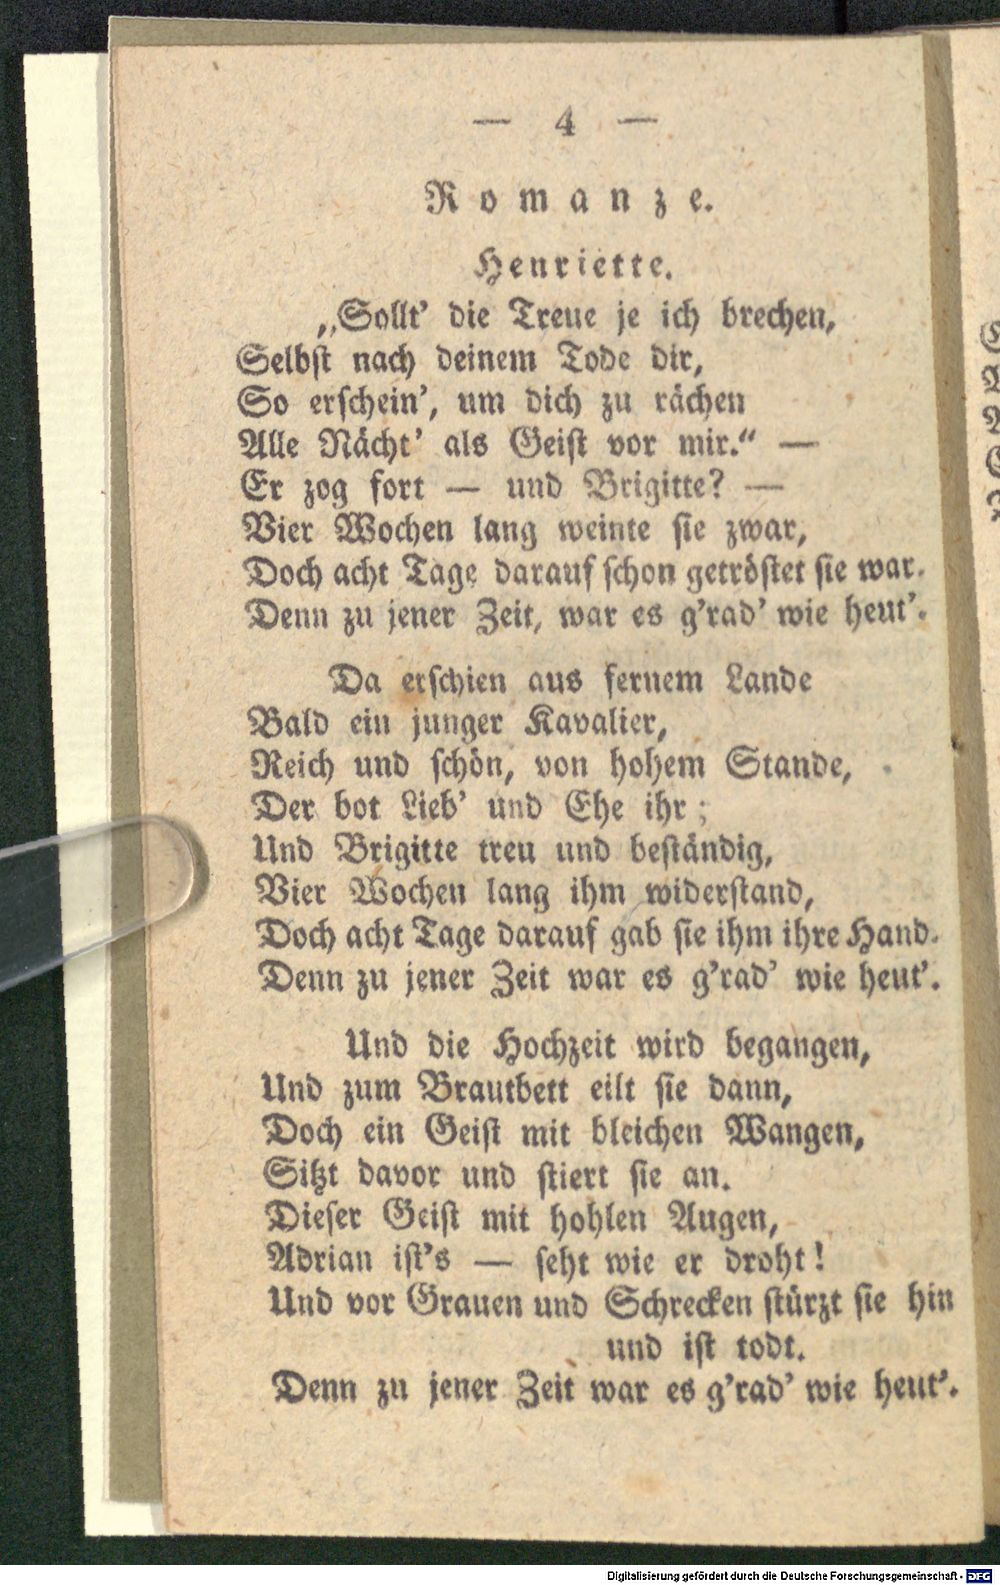 — 4 —
Romanze.
Henriette.
„Sollt' die Treue je ich brechen,
Selbst nach deinem Tode dir,
So erschein', um dich zu rächen
Alle Nächt' als Geist vor mir.“ —
Er zog fort — und Brigitte? —
Vier Wochen lang weinte sie zwar,
Doch acht Tage darauf schon getröstet sie war.
Denn zu jener Zeit, war es g'rad' wie heut'.
Da erschien aus fernem Lande
Bald ein junger Kavalier,
Reich und schön, von hohem Stande,
Der bot Lieb' und Ehe ihr;
Und Brigitte treu und beständig,
Vier Wochen lang ihm widerstand,
Doch acht Tage darauf gab sie ihm ihre Hand.
Denn zu jener Zeit war es g'rad' wie heut'.
Und die Hochzeit wird begangen,
Und zum Brautbett eilt sie dann,
Doch ein Geist mit bleichen Wangen,
Sitzt davor und stiert sie an.
Dieser Geist mit hohlen Augen,
Adrian ist's — seht wie er droht!
Und vor Grauen und Schrecken stürzt sie hin
und ist todt.
Denn zu jener Zeit war es g'rad' wie heut'.
Digitalisierung gefördert durch die Deutsche Forschungsgemeinschaft - DFG